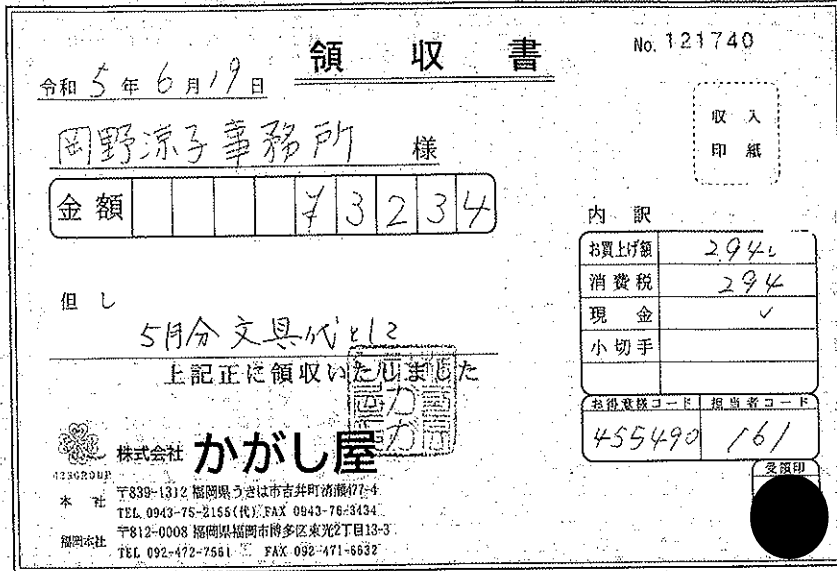 領収書
No. 121740
令和 5 年 6 月 19 日
収入
印紙
岡野涼子事務所 様
金額 ¥3234
内訳
お買上げ額 2,940
消費税 294
現金 ✓
小切手
但し
5月分 文具代として
上記正に領収いたしました
お得意様コード 担当者コード
455490 161
受領印
株式会社 かがし屋
123GROUP
本社 〒839-1312 福岡県うきは市吉井町清瀬477-4
TEL 0943-75-2155(代) FAX 0943-76-3434
福岡本社 〒812-0008 福岡県福岡市博多区東光2丁目13-3
TEL 092-472-7561 FAX 092-471-6632